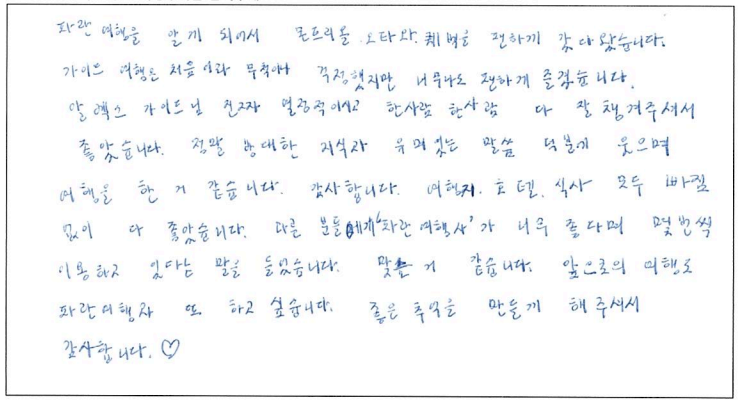 파란 여행을 알게 되어서 몬트리올. 오타와. 퀘벡을 편하게 갔다 왔습니다.
가이드 여행은 처음이라 무척이나 걱정했지만 너무나도 편하게 즐겼습니다.
알렉스 가이드님 진짜 열정적이시고 한사람 한사람 다 잘 챙겨주셔서
좋았습니다. 정말 방대한 지식과 유머있는 말씀 덕분에 웃으며
여행을 한 거 같습니다. 감사합니다. 여행지. 호텔. 식사 모두 빠짐
없이 다 좋았습니다. 다른 분들에게 '파란여행사'가 너무 좋다며 몇번씩
이용하고 있다는 말을 들었습니다. 맞는 거 같습니다. 앞으로의 여행도
파란여행사 또 하고 싶습니다. 좋은 추억을 만들게 해주셔서
감사합니다. ♡